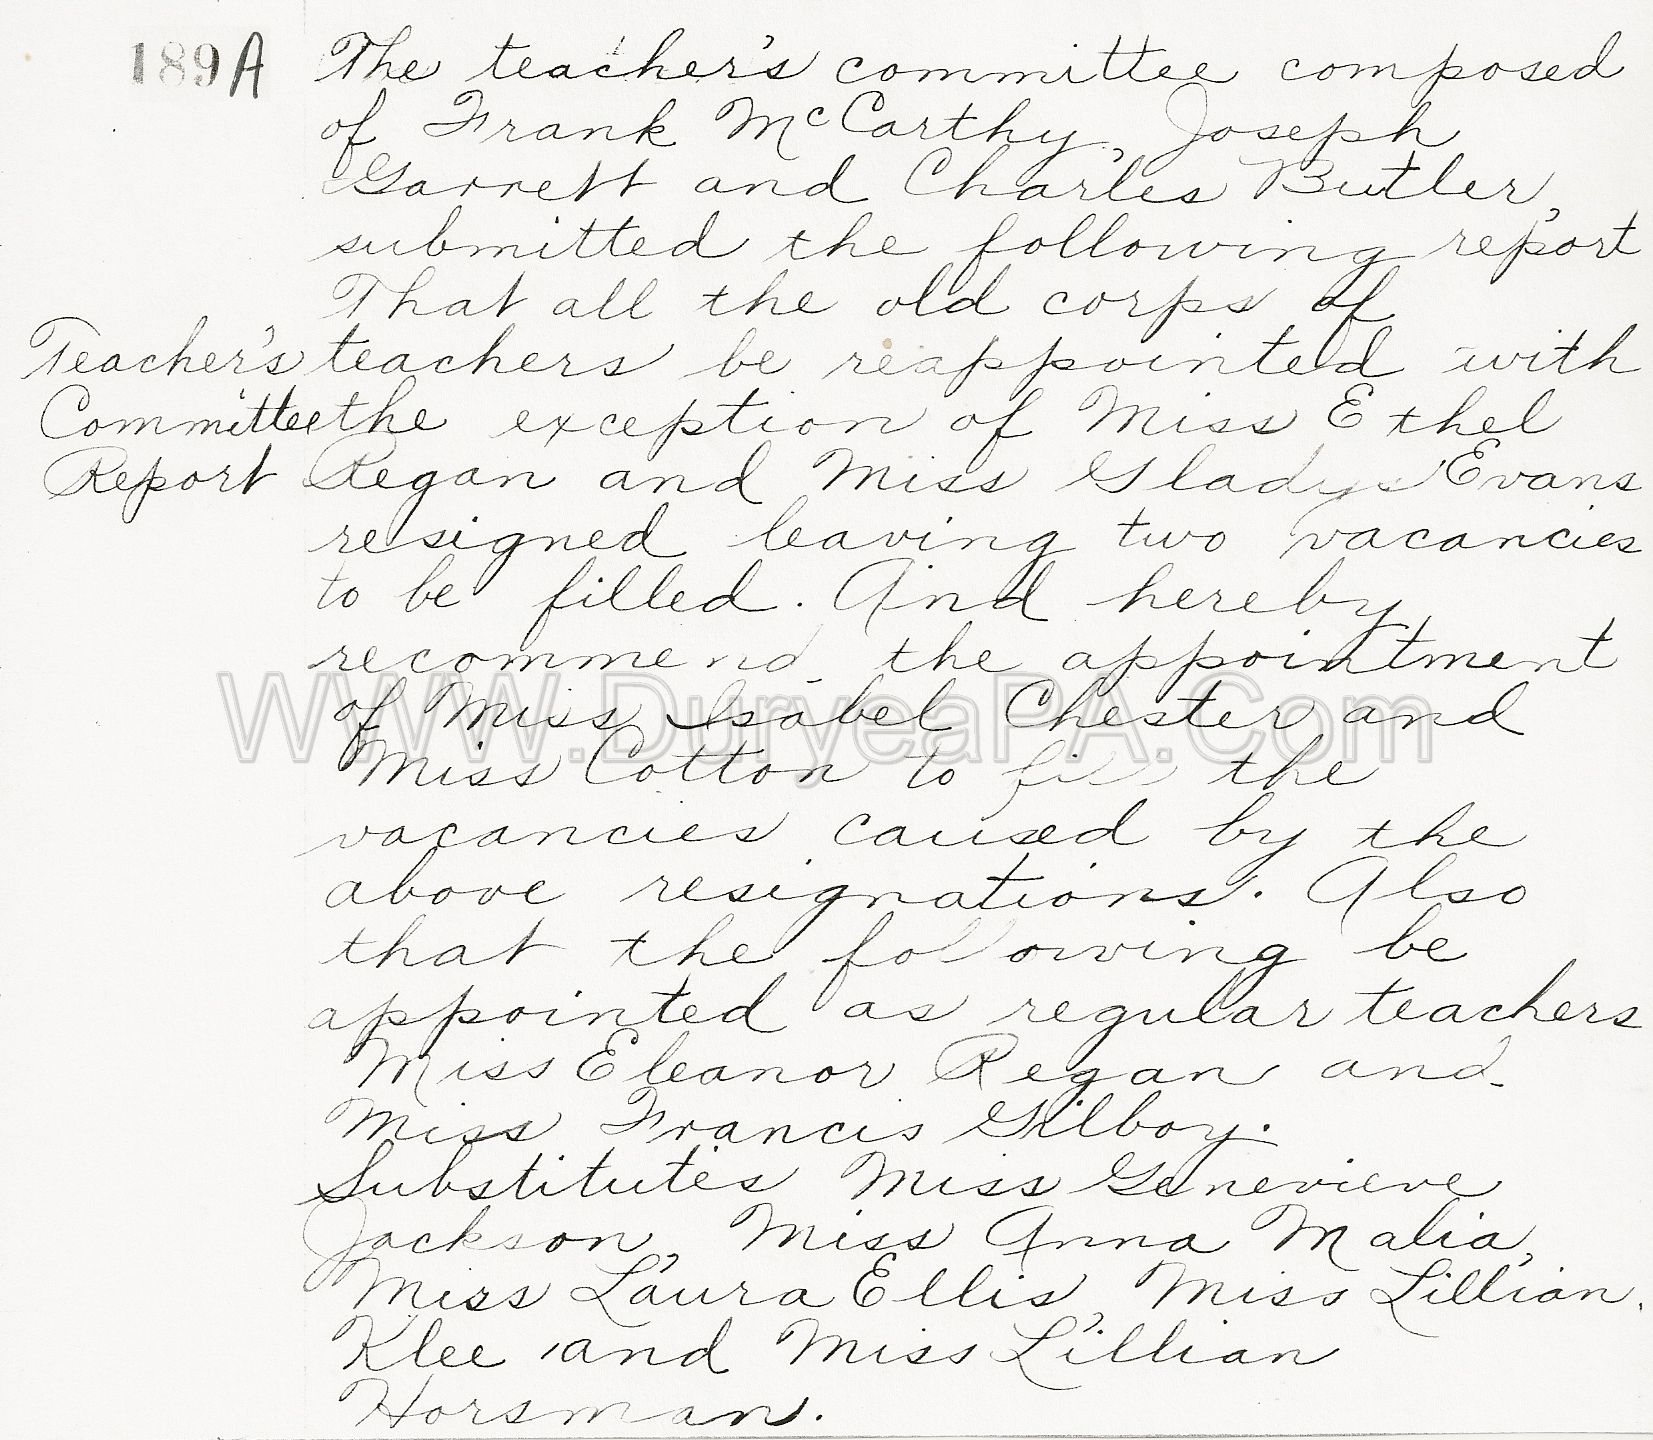 189A
The teacher's committee composed
of Frank McCarthy, Joseph
Garrett and Charles Butler,
submitted the following report
That all the old corps of
Teacher's
Committee
Report
teachers be reappointed with
the exception of Miss Ethel
Regan and Miss Gladys Evans
resigned leaving two vacancies
to be filled. And hereby
recommend the appointment
of Miss Isabel Chester and
Miss Cotton to fill the
vacancies caused by the
above resignations. Also
that the following be
appointed as regular teachers
Miss Eleanor Regan and
Miss Francis Gilboy.
Substitutes Miss Genevieve
Jackson, Miss Anna Malia,
Miss Laura Ellis, Miss Lillian
Klee and Miss Lillian
Horsman.
WWW.DuryeaPA.Com